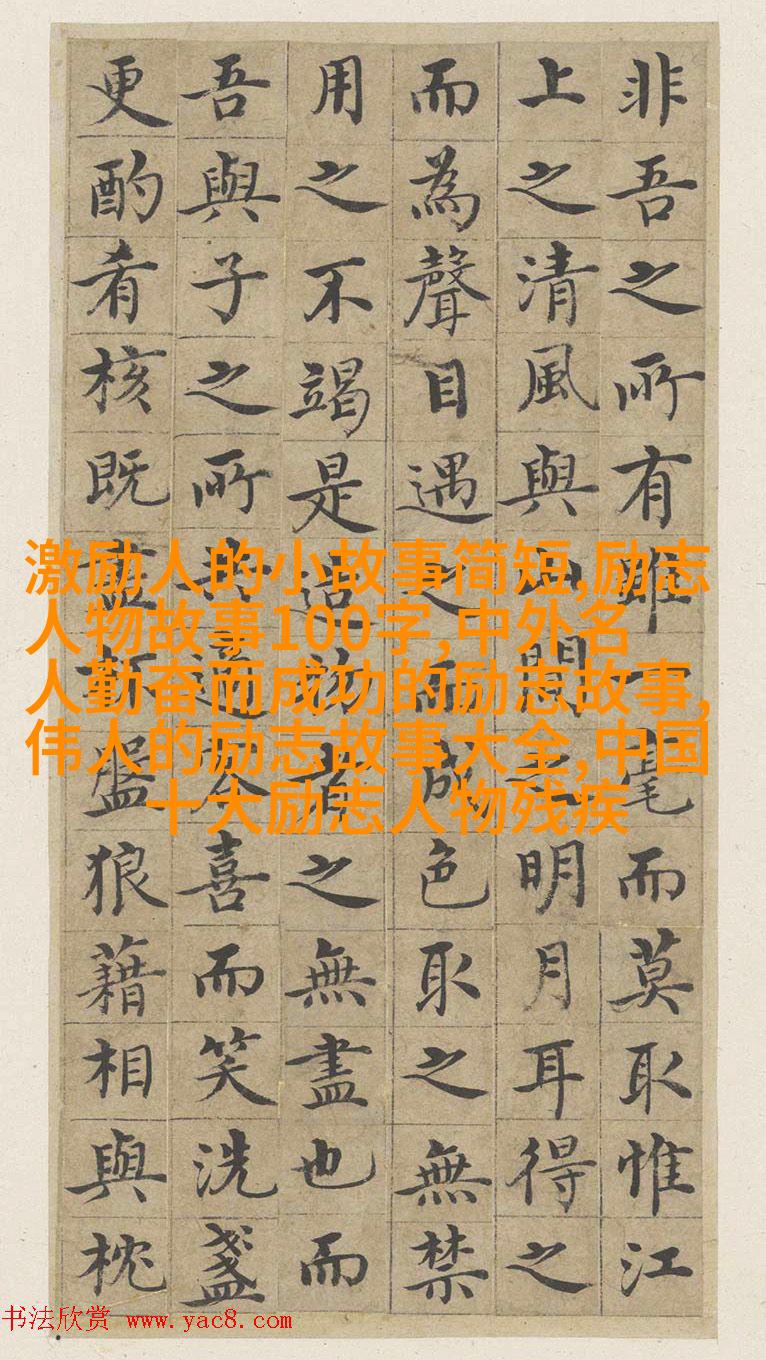 非吾之所有雖一毫而莫取惟江
上之清風與山間之明月耳得之
而為聲目遇之而成色取之無禁
用之不竭是造物者之無盡也而
吾與子之所共適客喜而笑洗盞
更酌肴核既盡杯盤狼藉相與枕
激励人的小故事简短,励志
人物故事100字,中外名
人勤奋而成功的励志故事,
伟人的励志故事大全,中国
十大励志人物残疾
书法欣赏 www.yac8.com